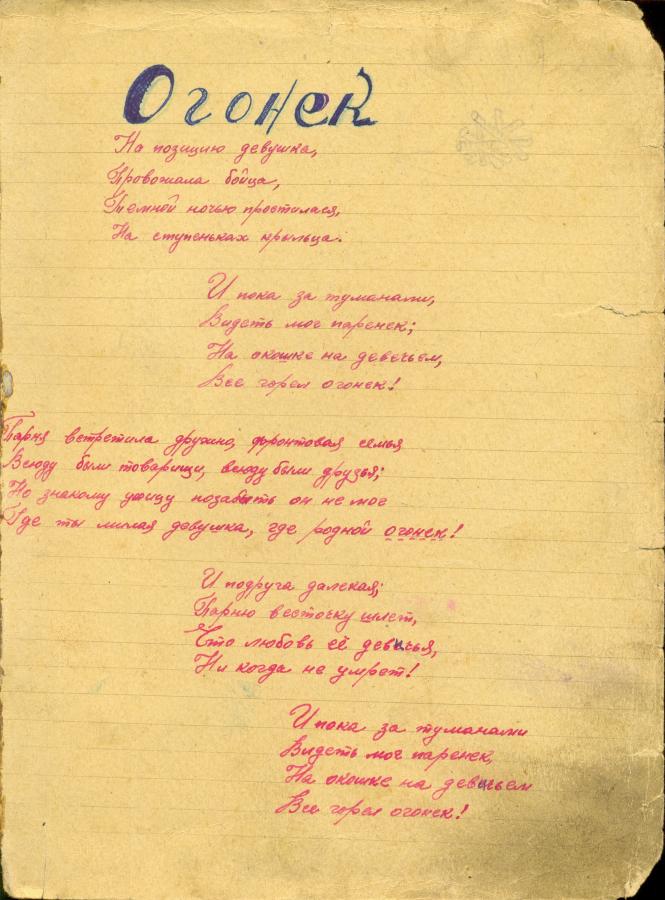 Огонек
На позицию девушка,
Провожала бойца,
Темной ночью простилася,
На ступеньках крыльца.
И пока за туманами,
Видеть мог паренек;
На окошке на девечьем,
Все горел огонек!
Парня встретила дружно, фронтовая семья
Всюду были товарищи, всюду были друзья;
Но знакому улицу позабыть он не мог
Где ты милая девушка, где родной огонек!
И подруга далекая;
Парню весточку шлет,
Что любовь её девичья,
Ни когда не умрет!
И пока за туманами
Видеть мог паренек,
На окошке на девичьем
Все горел огонек!